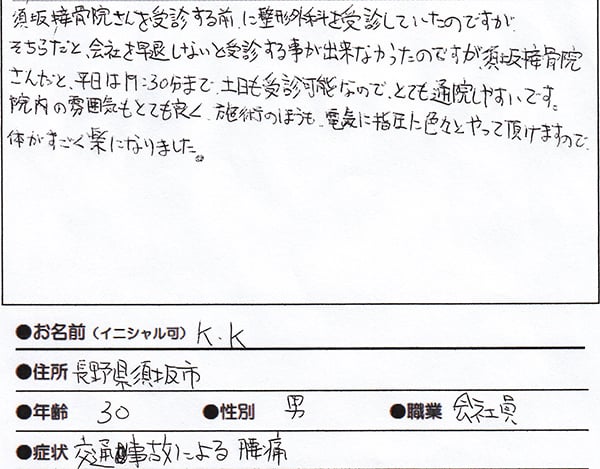 須坂接骨院さんを受診する前、に整形外科を受診していたのですが
そちらだと、会社を早退しないと受診する事が出来なかったのですが、須坂接骨院
さんだと、平日は19:30分まで、土日も受診可能なので、とても通院しやすいです。
院内の雰囲気もとても良く、施術のほうも、電気に指圧に色々とやって頂けますので、
体がすごく楽になりました。
●お名前（イニシャル可） K.K
●住所 長野県須坂市
●年齢 30 ●性別 男 ●職業 会社員
●症状 交通事故による腰痛